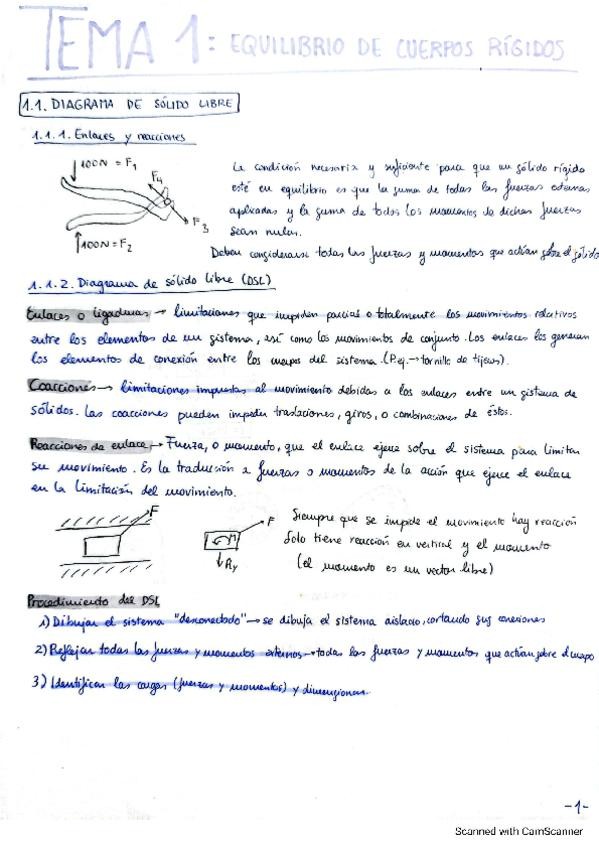 TEMA 1: EQUILIBRIO DE CUERPOS RÍGIDOS
1.1. DIAGRAMA DE SÓLIDO LIBRE
1.1.1. Enlaces y reacciones
100N = F1
F4
F3
100N = F2
La condición necesaria y suficiente para que un sólido rígido
esté en equilibrio es que la suma de todas las fuerzas externas
aplicadas y la suma de todos los momentos de dichas fuerzas
sean nulas.
Deben considerarse todas las fuerzas y momentos que actúan sobre el sólido
1.1.2. Diagrama de sólido libre (DSL)
Enlaces o ligaduras → limitaciones que impiden parcial o totalmente los movimientos relativos
entre los elementos de un sistema, así como los movimientos de conjunto. Los enlaces los generan
los elementos de conexión entre los cuerpos del sistema. (P.ej. → tornillo de tijeras).
Coacciones → limitaciones impuestas al movimiento debidas a los enlaces entre un sistema de
sólidos. Las coacciones pueden impedir traslaciones, giros, o combinaciones de éstos.
Reacciones de enlace → Fuerza, o momento, que el enlace ejerce sobre el sistema para limitar
su movimiento. Es la traducción a fuerzas o momentos de la acción que ejerce el enlace
en la limitación del movimiento.
F
F
M
Ry
Siempre que se impide el movimiento hay reacción
Solo tiene reacción en vertical y el momento
(el momento es un vector libre)
Procedimiento del DSL
1) Dibujar el sistema "desconectado" → se dibuja el sistema aislado, cortando sus conexiones
2) Reflejar todas las fuerzas y momentos externos → todas las fuerzas y momentos que actúan sobre el cuerpo
3) Identificar las cargas (fuerzas y momentos) y dimensiones.
-1-
Scanned with CamScanner